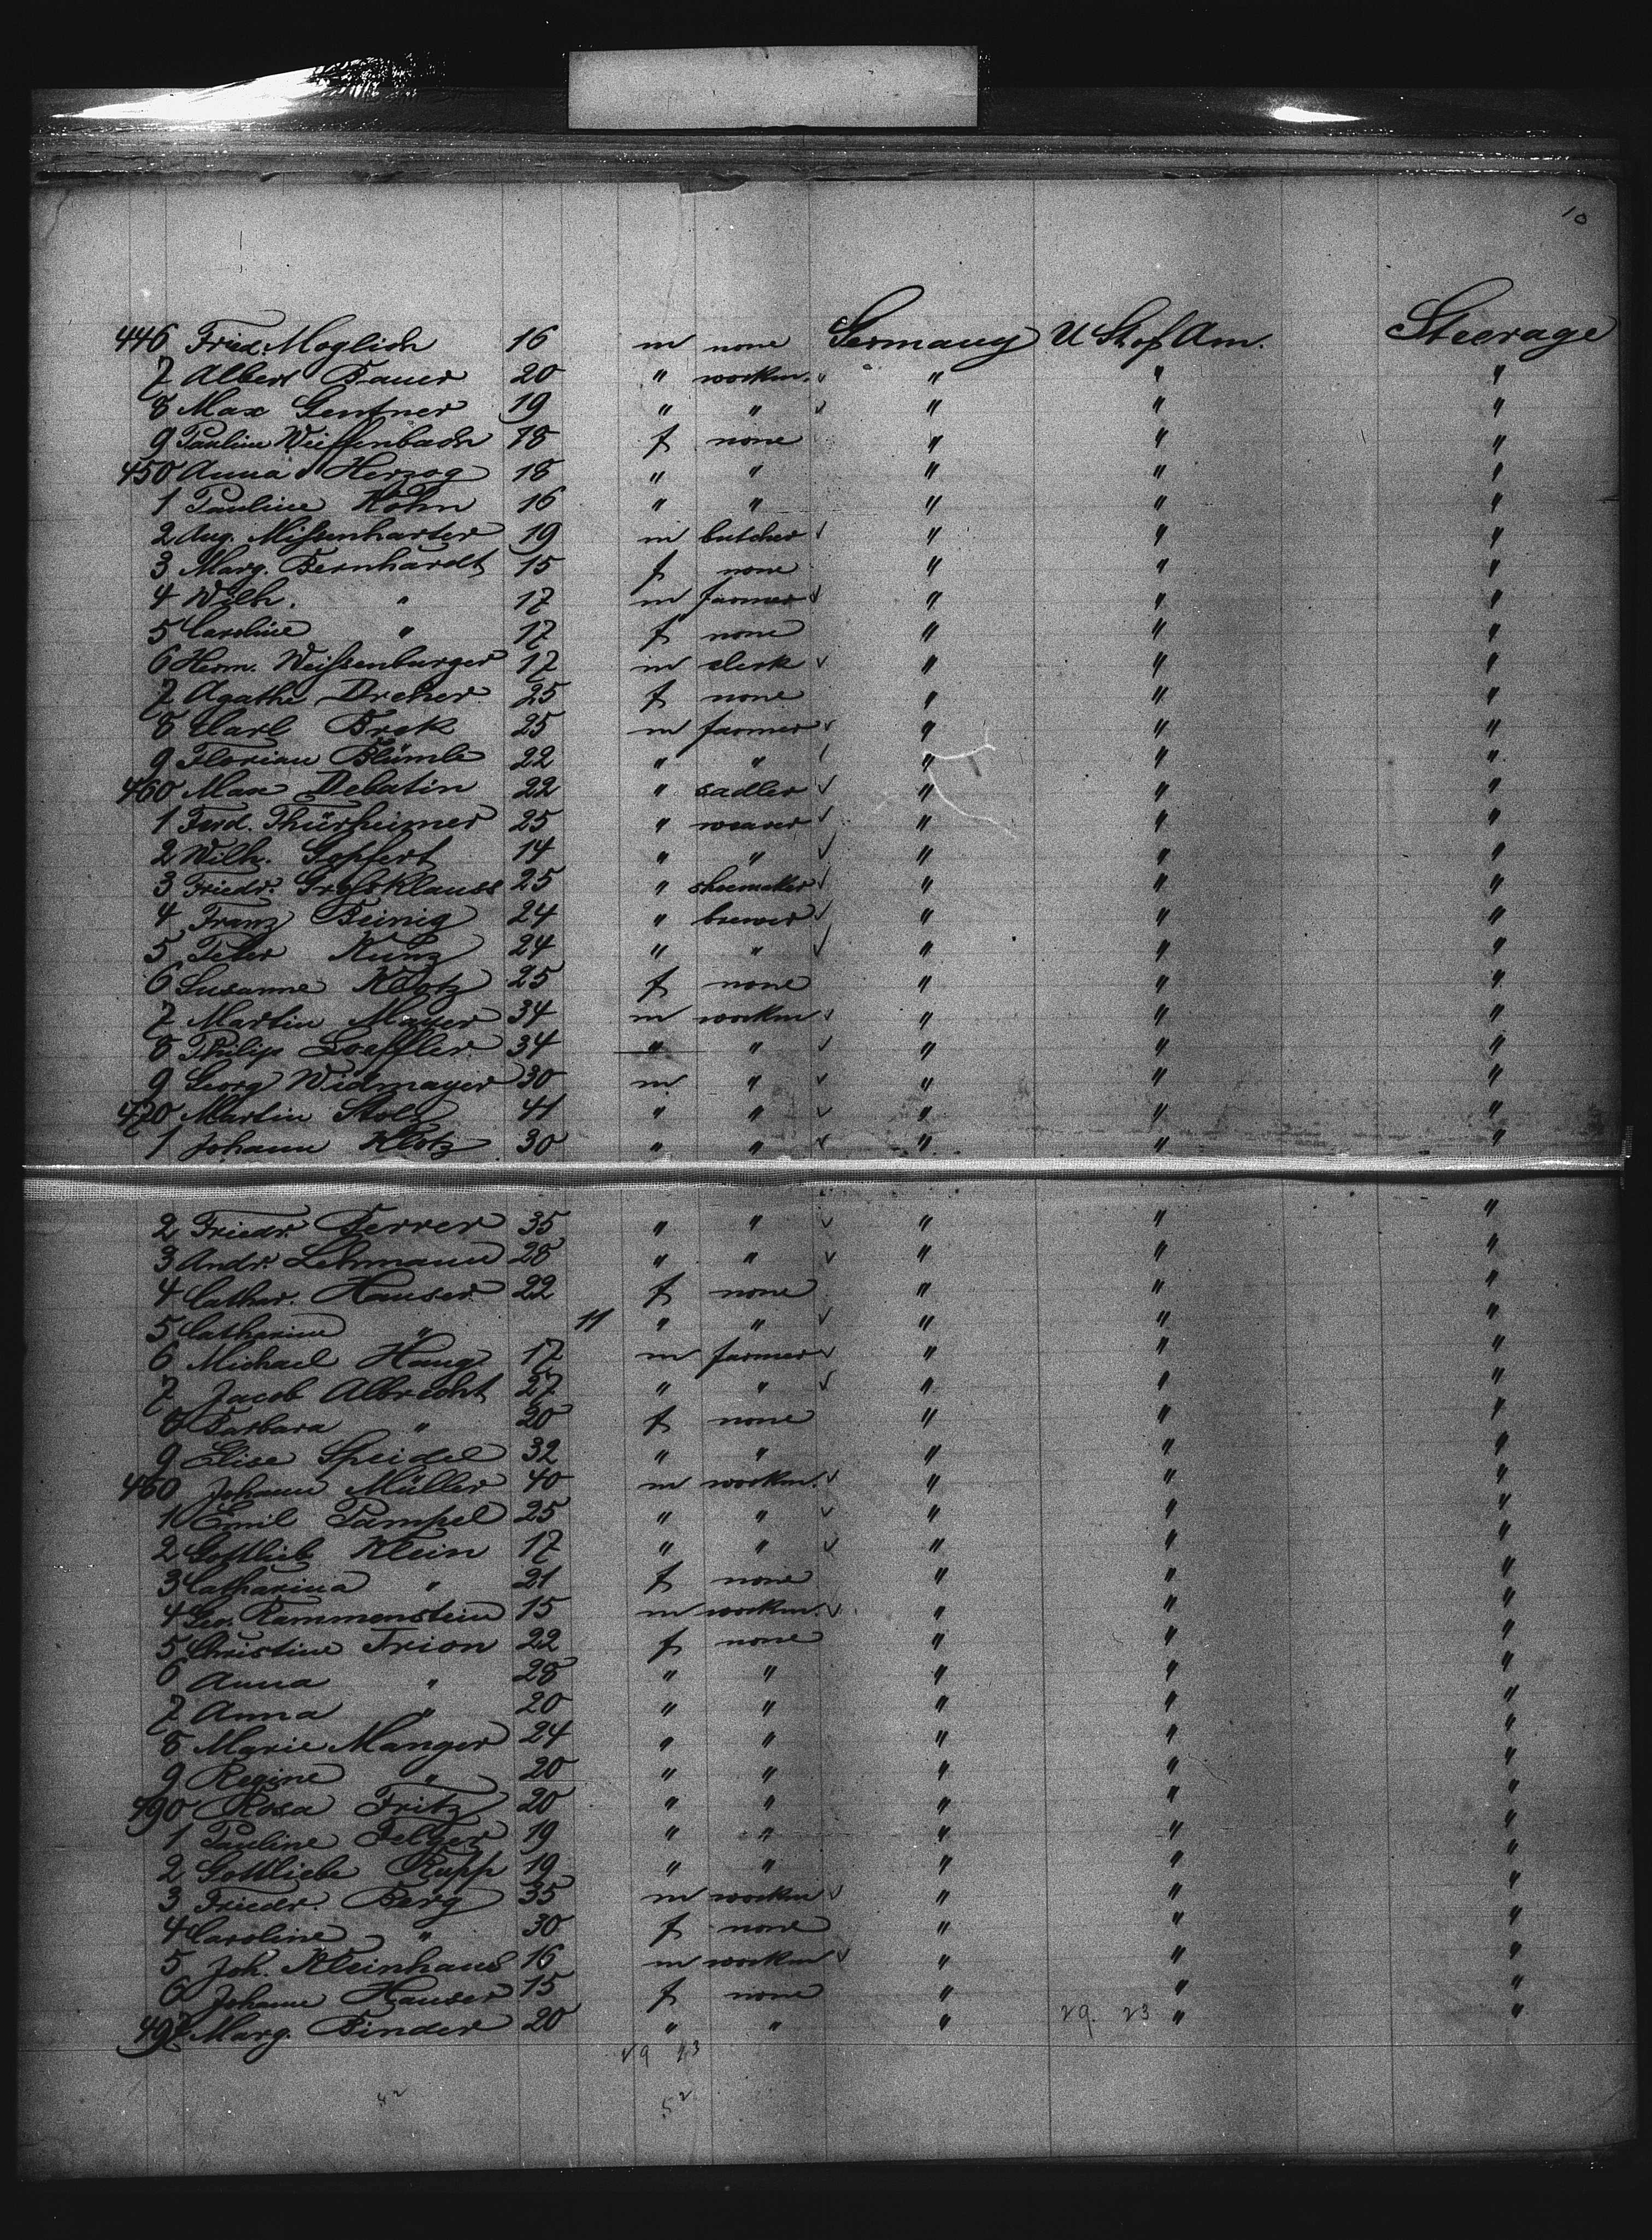 10
446 Fried. Moglich 16 m none Germany U St of Am. Steerage
7 Albert Bauer 20 " workm. " " "
8 Max Gentner 19 " " " " "
9 Pauline Weissenbach 18 f none " " "
450 Anna Herzog 18 " " " " "
1 Pauline Köhn 16 " " " " "
2 Aug. Missenharter 19 m butcher " " "
3 Marg. Bernhardt 15 f none " " "
4 Wilh. " 17 m farmer " " "
5 Caroline " 17 f none " " "
6 Herm. Weissenburger 17 m clerk " " "
7 Agathe Dreher 25 f none " " "
8 Carl Brek 25 m farmer " " "
9 Florian Blümle 22 " " " " "
460 Max Debatin 22 " sadler " " "
1 Ferd. Thürheimer 25 " weaver " " "
2 Wilh. Gepfert 14 " " " " "
3 Friedr. Grossklauss 25 " shoemaker " " "
4 Franz Beinig 24 " brewer " " "
5 Peter Kunz 24 " " " " "
6 Susanne Klotz 25 f none " " "
7 Martin Mayer 34 m workm " " "
8 Philip Loeffler 34 " " " " "
9 Georg Widmayer 30 m " " " "
470 Martin Stolz 41 " " " " "
1 Johann Klotz 30 " " " " "
2 Friedr. Ferrer 35 " " " " "
3 Andr. Lehmann 28 " " " " "
4 Cathar. Hauser 22 f none " " "
5 Catharine " 11 " " " " "
6 Michael Haug 17 m farmer " " "
7 Jacob Albrecht 27 " " " " "
8 Barbara " 20 f none " " "
9 Elise Speidel 32 " " " " "
480 Johann Müller 40 m workm. " " "
1 Emil Pampel 25 " " " " "
2 Gottlieb Klein 17 " " " " "
3 Catharina " 21 f none " " "
4 Geo. Rammenstein 15 m workm. " " "
5 Christine Trion 22 f none " " "
6 Anna " 28 " " " " "
7 Anna " 20 " " " " "
8 Marie Manger 24 " " " " "
9 Regine " 20 " " " " "
490 Rosa Fritz 20 " " " " "
1 Pauline Felger 19 " " " " "
2 Gottliebe Rupp 19 " " " " "
3 Friedr. Berg 35 m workm " " "
4 Caroline " 30 f none " " "
5 Joh. Kleinhans 16 m workm " " "
6 Johanne Hauser 15 f none " " "
497 Marg. Binder 20 " " " 29 23 " "
29 23
52 52